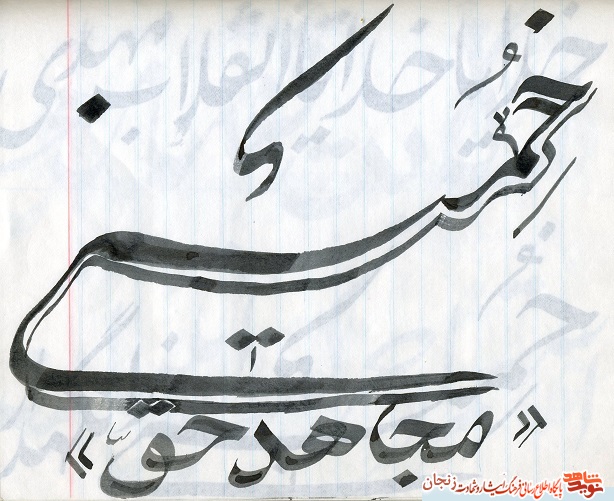 خدایا خدایا تا انقلاب مهدی
خمینی
« مجاهد حق »
نوید شاهد پایگاه اطلاع رسانی فرهنگ ایثار و شهادت زنجان